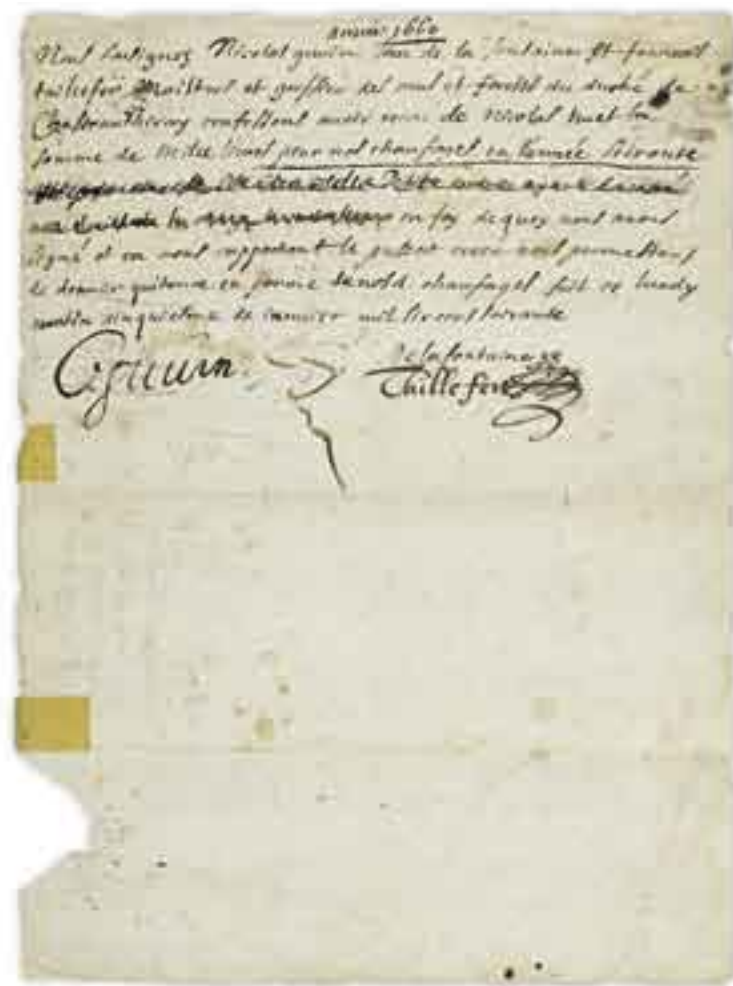 année 1660
Nous soubsignez Nicolas guerin Jean de la fontaine et françois
taillefer Maistres et greffier des eaux et forests du duché de
Chasteauthierry confessons avoir receu de Nicolas huet la
somme de pour nos chaufages en l'année soixante
en foy de quoy nous avons
signé et en nous rapportant le present receu nous promettons
de donner quitance en forme desdits chaufages fait ce lundy
matin cinquiesme de janvier mil six cent soixante
Guerin
De la fontaine
Taillefer